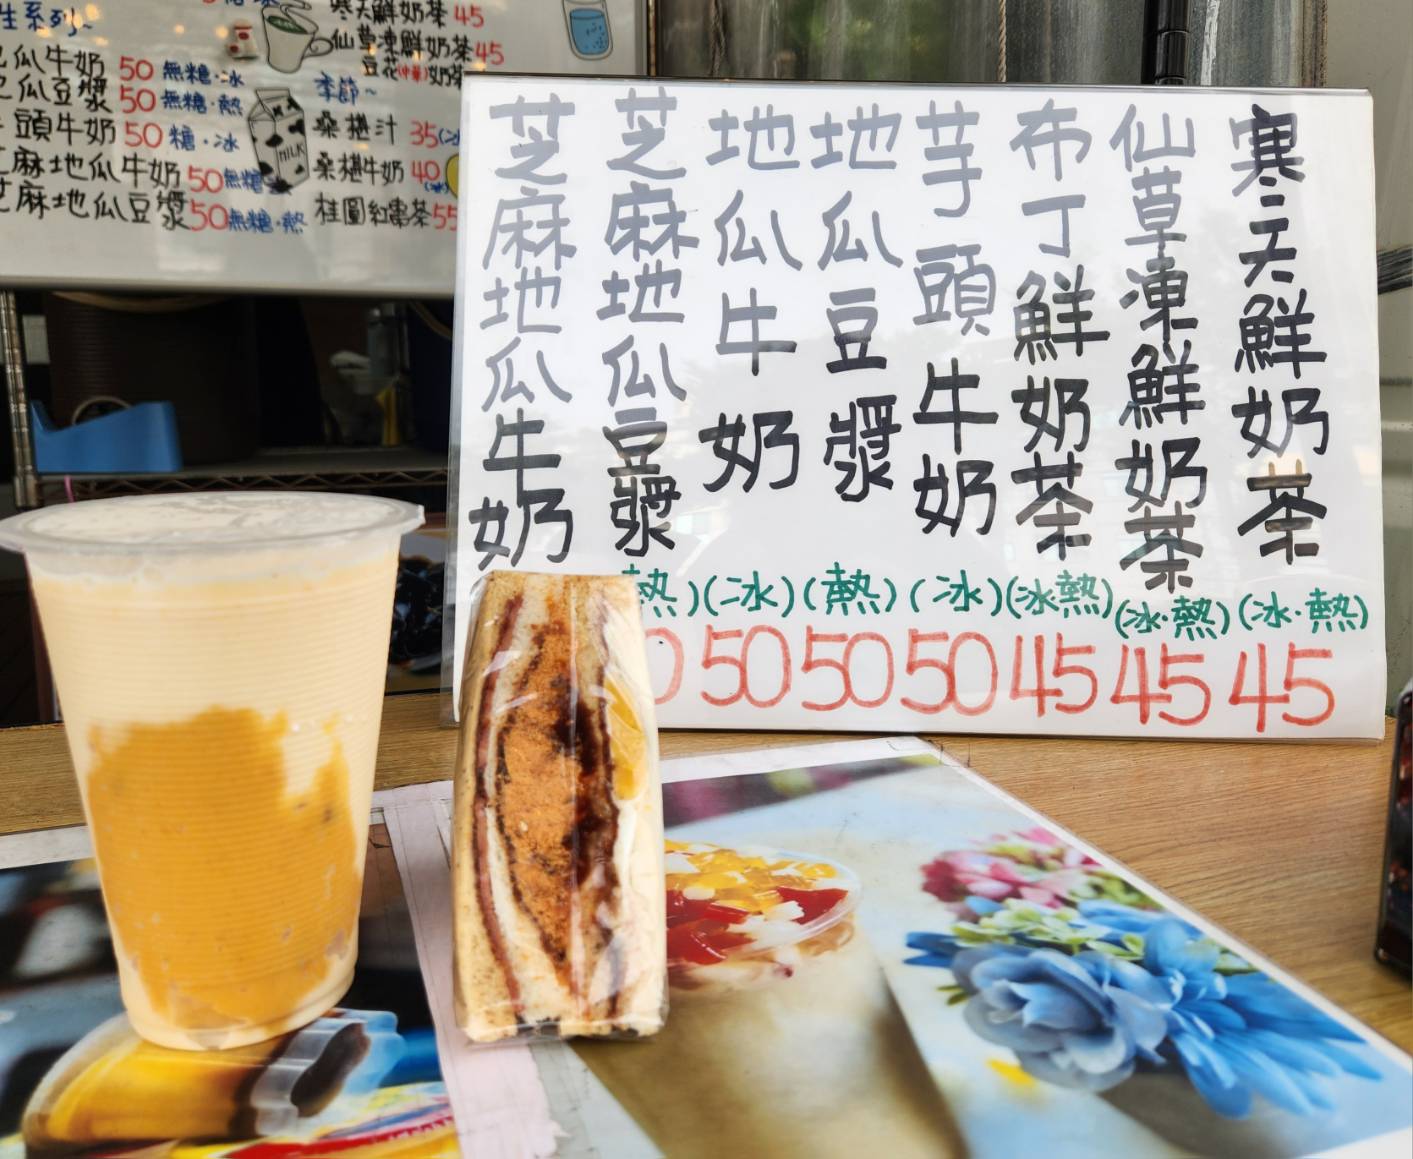 生系列~
瓜牛奶 50 無糖·冰
瓜豆漿 50 無糖·熱
頭牛奶 50 糖·冰
芝麻地瓜牛奶 50 無糖
芝麻地瓜豆漿 50 無糖·熱
寒天鮮奶茶 45
仙草凍鮮奶茶 45
豆花 奶茶
季節~
桑椹汁 35(冰
桑椹牛奶 40
(冰
桂圓紅棗茶 55
MILK
芝麻地瓜牛奶
芝麻地瓜豆漿 熱) 0
地瓜牛奶 (冰) 50
地瓜豆漿 (熱) 50
芋頭牛奶 (冰) 50
布丁鮮奶茶 (冰熱) 45
仙草凍鮮奶茶 (冰·熱) 45
寒天鮮奶茶 (冰·熱) 45